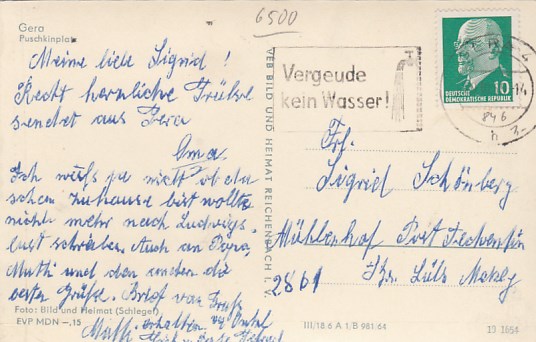 6500
Gera
Puschkinplatz
Meine liebe Sigrid!
Recht herzliche Grüße
sendet aus Gera
Oma.
Ich weiß ja nicht ob du
schon zuhause bist wollte
nicht mehr nach Ludwigs-
lust schreiben. Auch an Papa,
Mutti und den andern die
besten Grüße. Brief von
Mutti erhalten, Onkel
Foto: Bild und Heimat (Schlegel)
EVP MDN —,15
VEB BILD UND HEIMAT REICHENBACH I. V.
Vergeude
kein Wasser!
10
DEUTSCHE
DEMOKRATISCHE REPUBLIK
-14
Frl.
Sigrid Schönberg
Mühlenhof Post
2861 Krs. Lübz Meckl
III/18/6 A 1/B 981/64